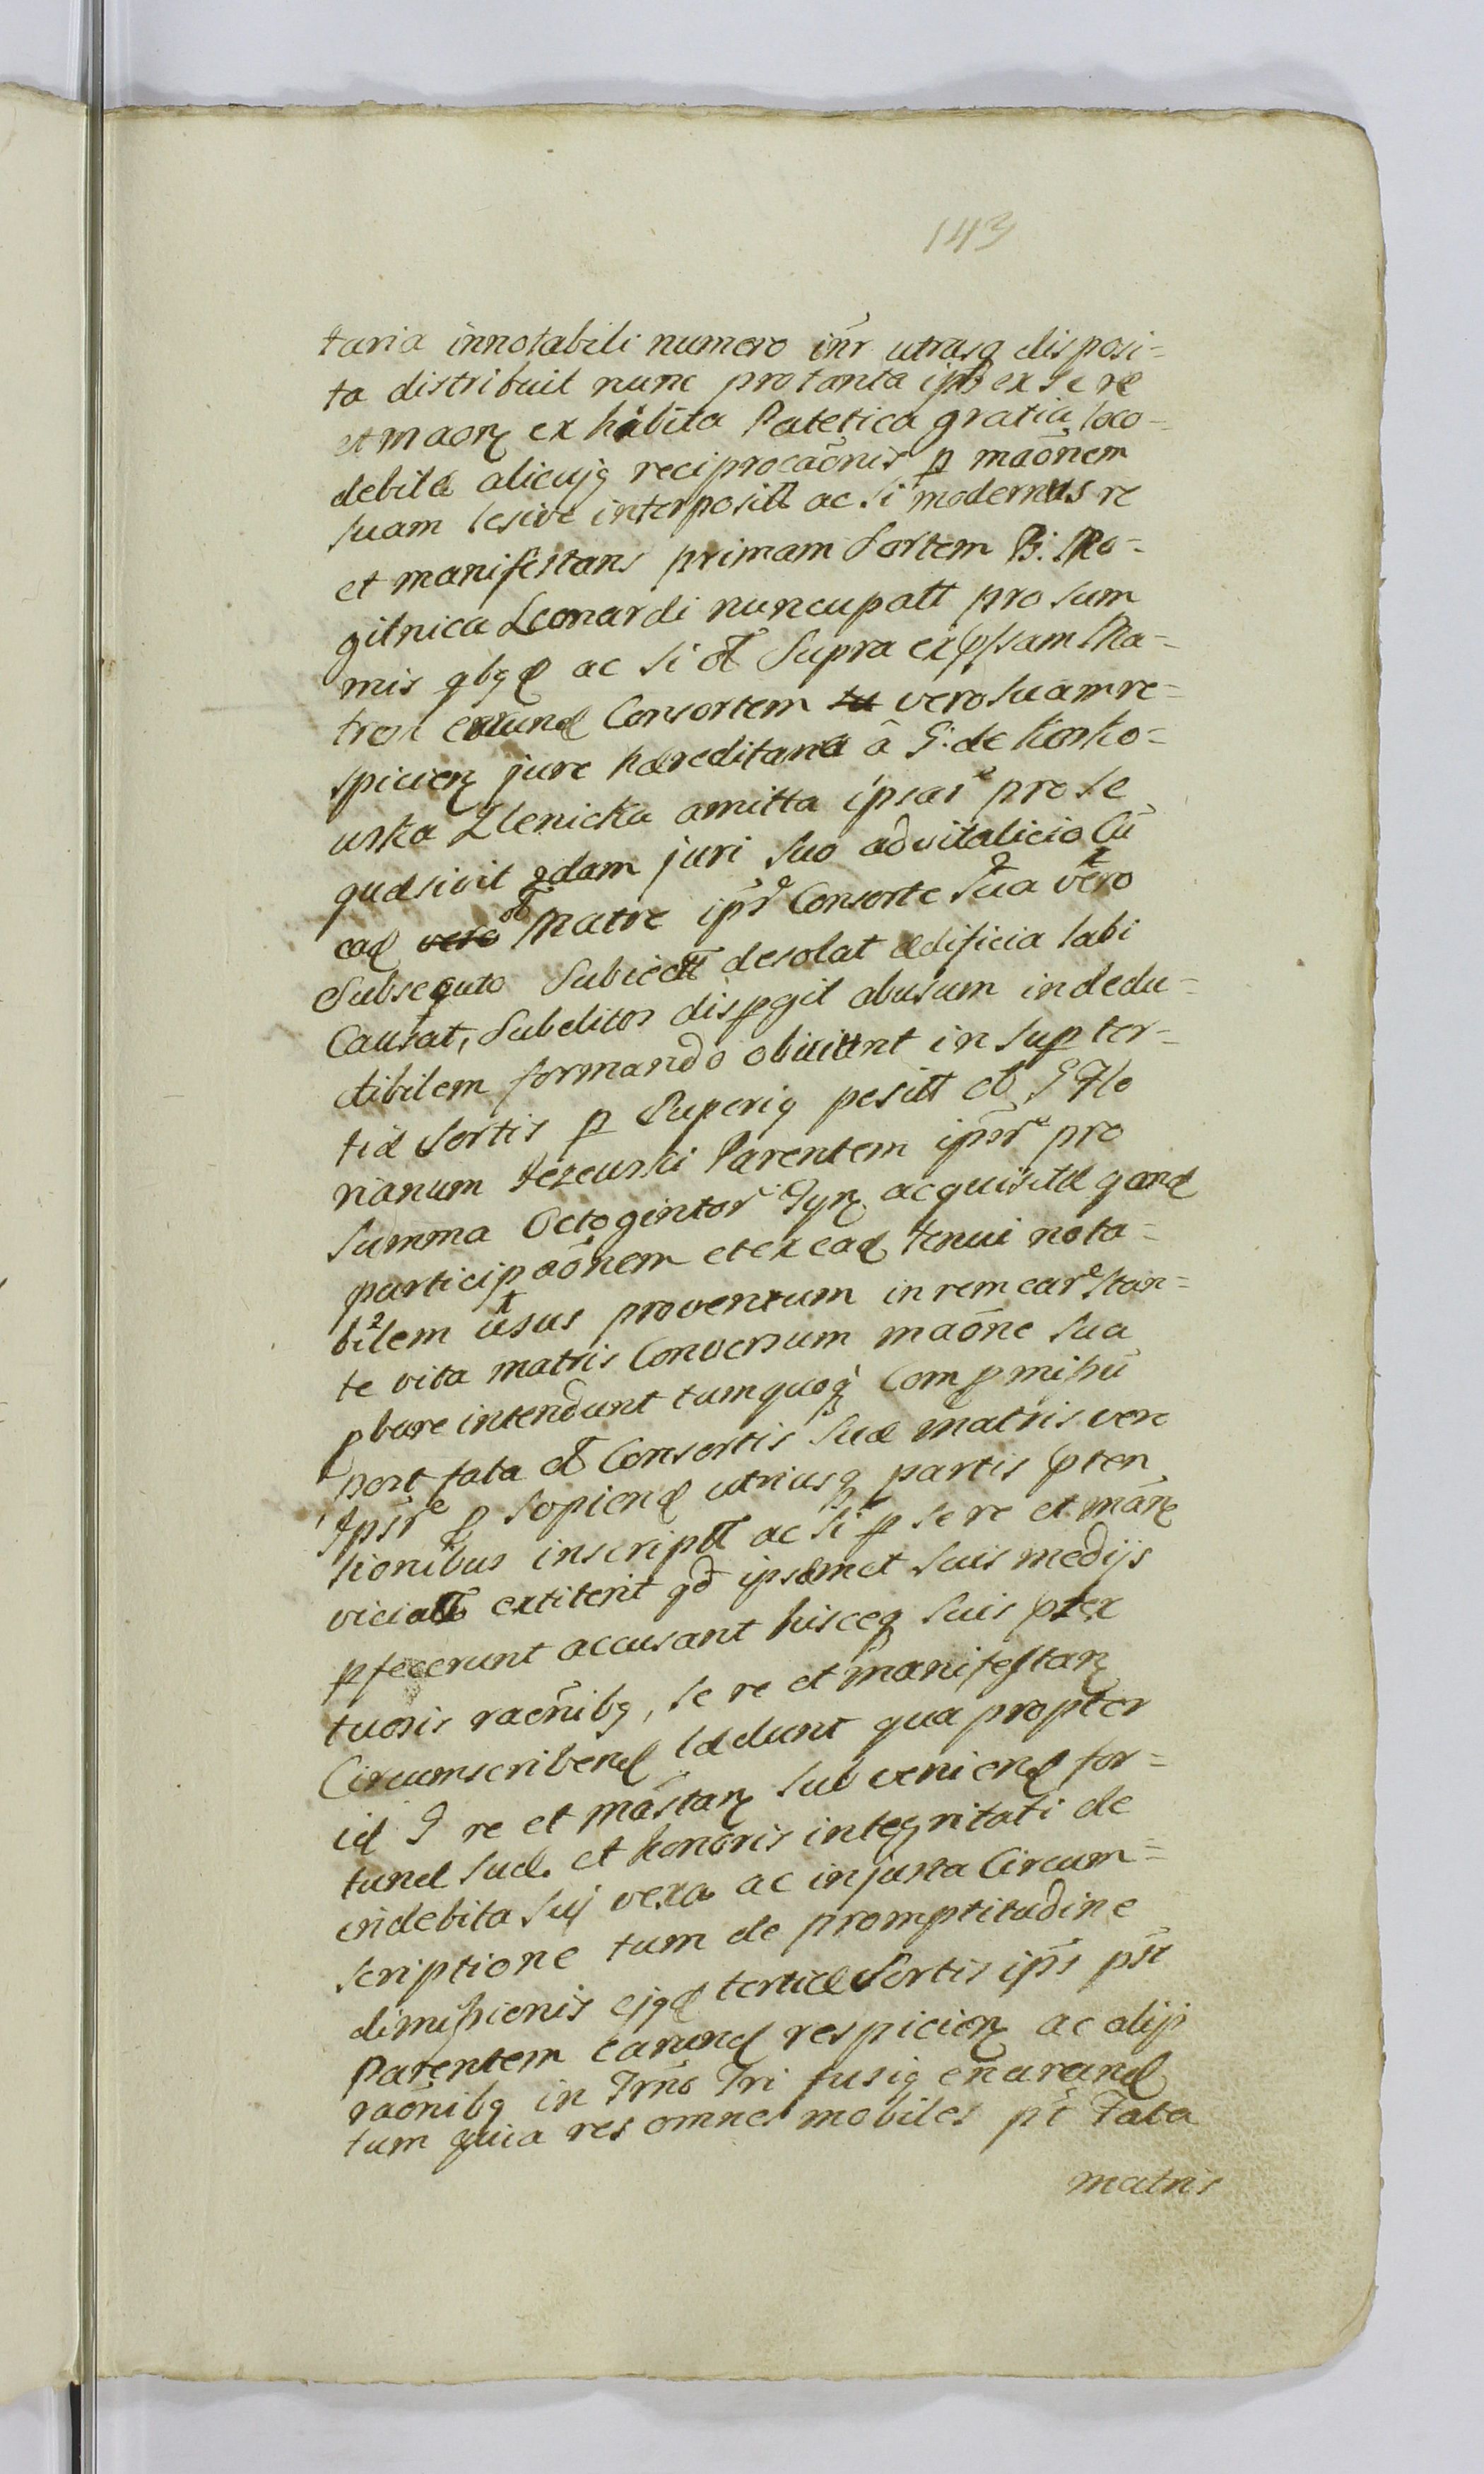 143
taria innotabili numero inr̃ utrasq disposi=
ta distribuit nunc pro tanta ips̃ ex se re
et maõrz ex habita Patetica gratia loco-
debitæ alicujq reciprocaõnis p maõnem
suam lesive interposit̃t ac si modernus re
et manifestans primam Sortem B: Mo-
gilnica Leonardi nuncupatt pro sum̃
mis qbqd ac si ōt Supra expssam Ma-
trem eorund Consortem vero suam re=
spicierz jure hæreditaria â G: de Kosko=
wska Zlenicka amitta ipsare pro se
quæsivit qdam juri suo advitalicio Cũ
ead ōt Matre ipsre Consorte Sua vero
Subsequto Subiectt desolat ædificia labi
Causat, Subditos dispgit abusum indedu=
ctibilem formando obvi͏ent insup ter=
tiæ Sortis p Superiq posit̃t ōt G Flo
rianum Jezewski Parentem ipsre pro
Summa Octogintor Tyrz acquisitæ qand
participaõnem et ex ead tenui nota=
bilem usus proventum in rem eare stan=
te vita matris Conversum maõne sua
pbare intendunt tum quoq Compmissũ
post fata ōt Consortis suæ matris vero
Ipsre p sopiend utriusq partis pten
sionibus inscriptt ac si p se re et mãnz
viciatt extiterit qd ipsemet suis medijs
pfecerunt accusant hisceq suis ptex
tuosis raõnibq, se re et manifestarz
Circumscribend lædunt qua propter
id I re et mãstarz subveniend for=
tunæ suæ. et honoris integritati de
indebita sui vexa ac injusta Circum=
scriptione tum de promptitudine
dimissionis ejqd tertiæ Sortis ips̃ pst̃
Parentem earund respicierz ac alijs
raõnibq in Trno Tri fusiq enarand
tum quia res omnes mobiles pt̃ Fata
matris